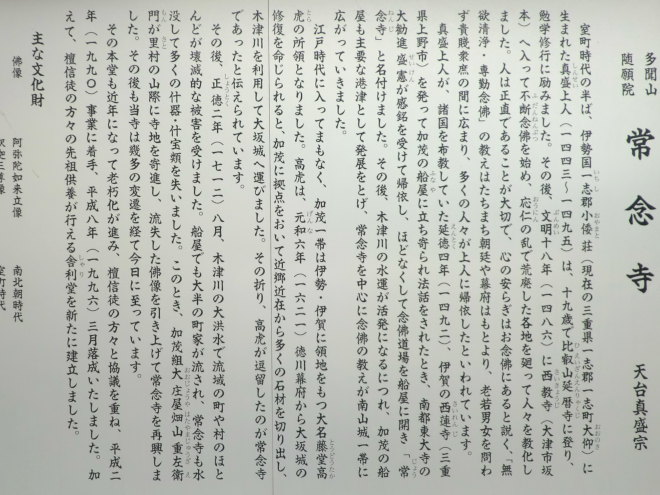 多聞山
随願院
常念寺
天台真盛宗
室町時代の半ば、伊勢国一志郡小倭荘(現在の三重県一志郡一志町大仰)に
生まれた真盛上人(一四四三〜一四九五)は、十九歳で比叡山延暦寺に登り、
勉学修行に励みました。その後、文明十八年(一四八六)に西教寺(大津市坂
本)へ入って不断念佛を始め、応仁の乱で荒廃した各地を廻って人々を教化し
ました。人は正直であることが大切で、心の安らぎはお念佛にあると説く、「無
欲清浄・専勤念佛」の教えはたちまち朝廷や幕府はもとより、老若男女を問わ
ず貴賤衆庶の間に広まり、多くの人々が上人に帰依したといわれています。
真盛上人が、諸国を布教していた延徳四年(一四九二)、伊賀の西蓮寺(三重
県上野市)を発って加茂の船屋に立ち寄られ法話をされたとき、南都東大寺の
大勧進盛憲が感銘を受けて帰依し、ほどなくして念佛道場を船屋に開き、「常
念寺」と名付けました。その後、木津川の水運が活発になるにつれ、加茂の船
屋も主要な港津として発展をとげ、常念寺を中心に念佛の教えが南山城一帯に
広がっていきました。
江戸時代に入ってまもなく、加茂一帯は伊勢・伊賀に領地をもつ大名藤堂高
虎の所領となりました。高虎は、元和六年(一六二一)徳川幕府から大坂城の
修復を命じられると、加茂に拠点をおいて近郷近在から多くの石材を切り出し、
木津川を利用して大坂城へ運びました。その折り、高虎が逗留したのが常念寺
であったと伝えられています。
その後、正徳二年(一七一二)八月、木津川の大洪水で流域の町や村のほと
んどが壊滅的な被害を受けました。船屋でも大半の町家が流され、常念寺も水
没して多くの什器、什宝類を失いました。このとき、加茂組大庄屋畑山重左衛
門が里村の山際に寺地を寄進し、流失した佛像を引き上げて常念寺を再興しま
した。その後も当寺は幾多の変遷を経て今日に至っています。
その本堂も近年になって老朽化が進み、檀信徒の方々と協議を重ね、平成二
年(一九九〇)事業に着手、平成八年(一九九六)三月落成いたしました。加
えて、檀信徒の方々の先祖供養が行える舎利堂を新たに建立しました。
主な文化財
佛像 阿弥陀如来立像 南北朝時代
釈迦三尊像 室町時代